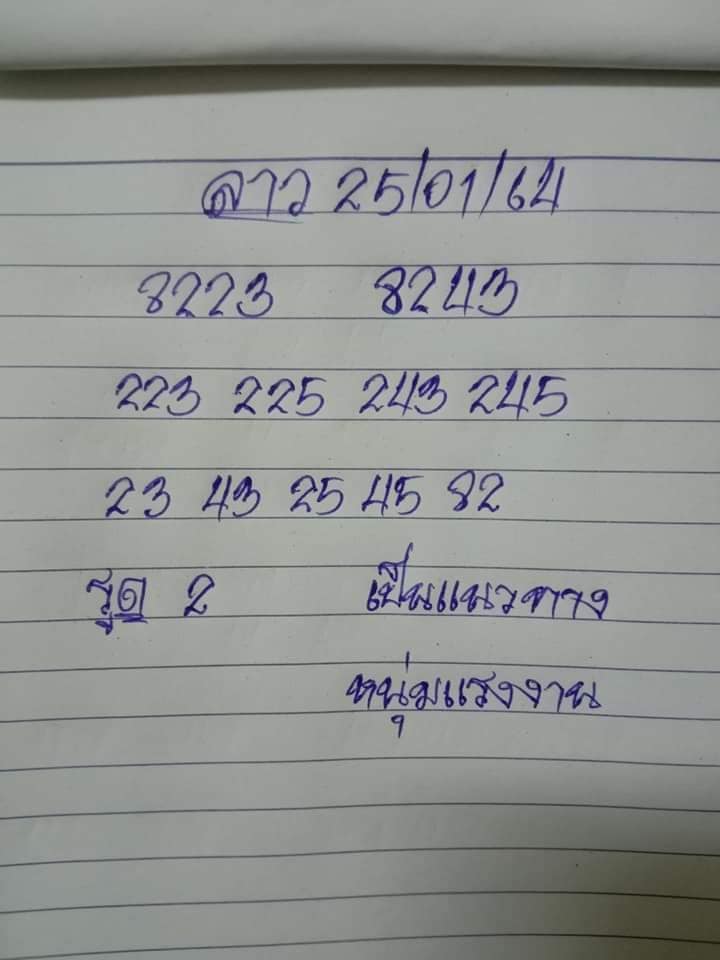 ลาว 25/01/64
8223 8243
223 225 243 245
23 43 25 45 82
รูด 2 เป็นแนวทาง
หนุ่มแรงงาน